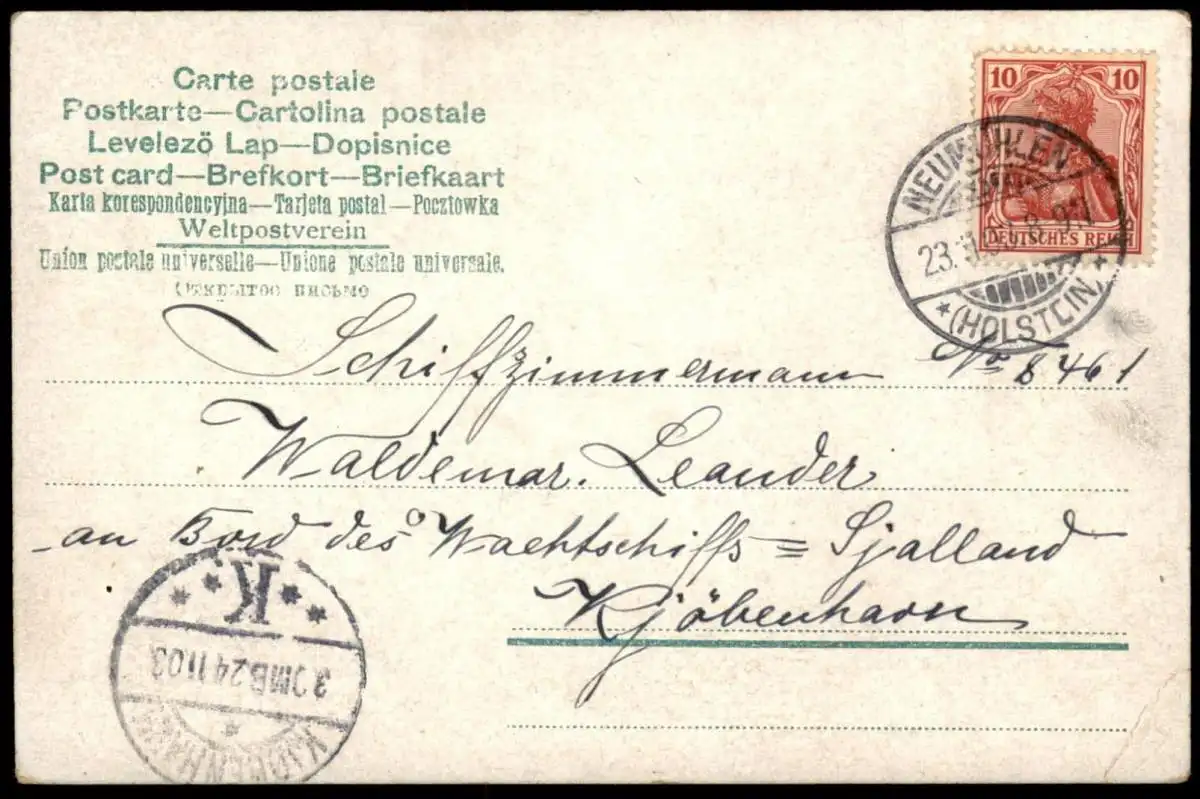 Carte postale
Postkarte—Cartolina postale
Levelező Lap—Dopisnice
Post card—Brefkort—Briefkaart
Karta korespondencyjna—Tarjeta postal—Pocztowka
Weltpostverein
Union postale universelle—Unione postale universale.
Открытое письмо
10 10
DEUTSCHES REICH
NEUMÜHLEN
23.
* (HOLSTEIN) *
Schiffzimmermann No 8461
Waldemar. Leander
an Bord des Wachtschiffs = Sjalland
Kjöbenhavn
K
3 OMB 24 11 03
KJØBENHAVN